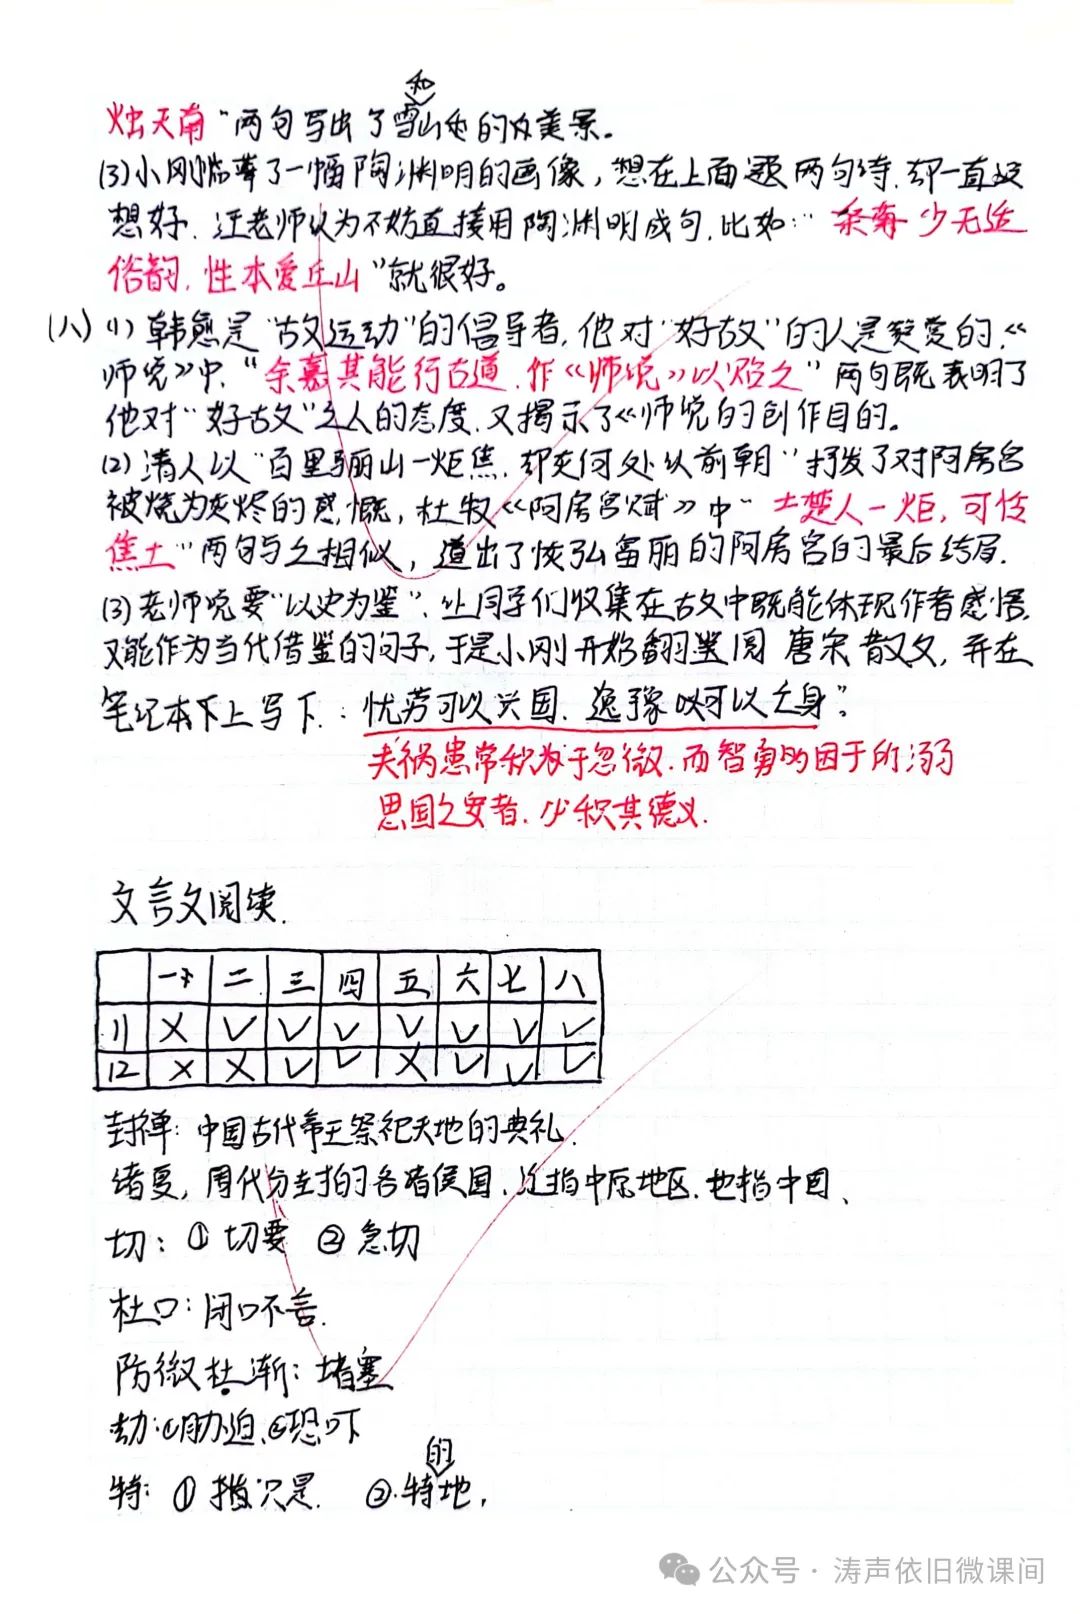 和
烛天南”两句写出了雪山的美景。
(3)小刚临摹了一幅陶渊明的画像，想在上面题两句诗，却一直没
想好，汪老师认为不妨直接用陶渊明成句，比如：“少无适
俗韵，性本爱丘山”就很好。
(八) (1) 韩愈是“古文运动”的倡导者，他对“好古文”的人是赞赏的，《
师说》中，“余嘉其能行古道，作《师说》以贻之”两句既表明了
他对“好古文”之人的态度，又揭示了《师说的创作目的。
(2) 清人以“百里骊山一炬焦，却从何处认前朝”抒发了对阿房宫
被烧为灰烬的感慨，杜牧《阿房宫赋》中“楚人一炬，可怜
焦土”两句与之相似，道出了恢弘富丽的阿房宫的最后结局.
(3) 老师说要“以史为鉴”，让同学们收集在古文中既能体现作者感悟，
又能作为当代借鉴的句子，于是小刚开始翻阅唐宋散文，并在
笔记本上写下：忧劳可以兴国，逸豫可以亡身”。
夫祸患常积于忽微，而智勇多困于所溺
思国之安者，必积其德义.
文言文阅读.
一 二 三 四 五 六 七 八
11 × ✓ ✓ ✓ ✓ ✓ ✓ ✓
12 × × ✓ ✓ × ✓ ✓ ✓
封禅：中国古代帝王祭祀天地的典礼.
诸夏，周代分封的各诸侯国，泛指中原地区，也指中国、
切：① 切要 ② 急切
杜口：闭口不言.
防微杜渐：堵塞
劫：①胁迫②恐吓
的
特：① 只是. ② 特地，
公众号·涛声依旧微课间